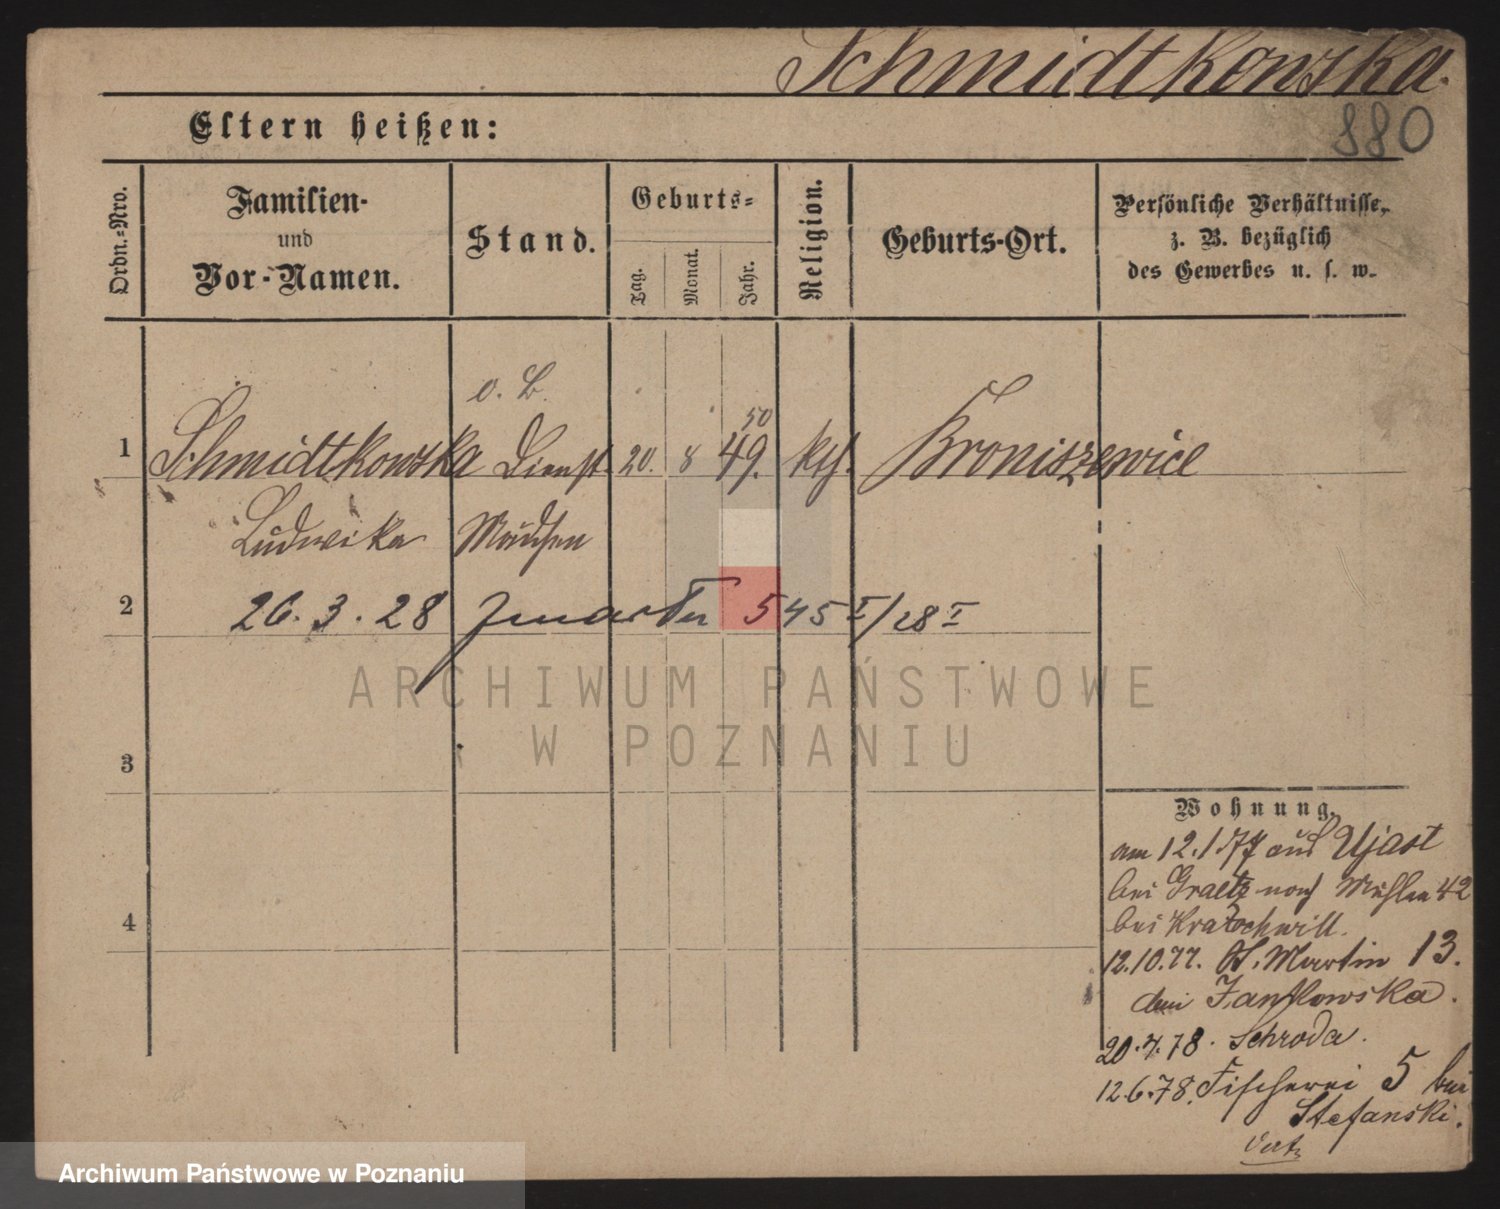 Schmidtkowska.
880
Eltern heißen:
Ordn.-Nro.
Familien-
und
Vor-Namen.
Stand.
Geburts-
Tag.
Monat.
Jahr.
Religion.
Geburts-Ort.
Persönliche Verhältnisse,
z. B. bezüglich
des Gewerbes u. s. w.
o. B.
50
1 Schmidtkowska Dienst 20. 8 49. kth. Broniszewice
Ludwika Mädchen
2 26. 3. 28 zmarła 545 I/28 I
ARCHIWUM PAŃSTWOWE
W POZNANIU
3
4
Wohnung.
am 12.1 77 aus Ujast
bei Graetz nach Mühlen 42
bei Kratochwill.
12.10.77. St. Martin 13.
bei Jankowska.
20.4.78. Schroda.
12.6.78. Fischerei 5 bei
Stefanski.
Archiwum Państwowe w Poznaniu